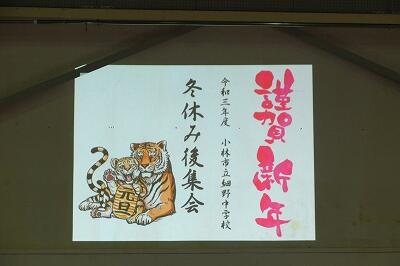 謹賀新年
令和三年度 小林市立細野中学校
冬休み後集会
元旦